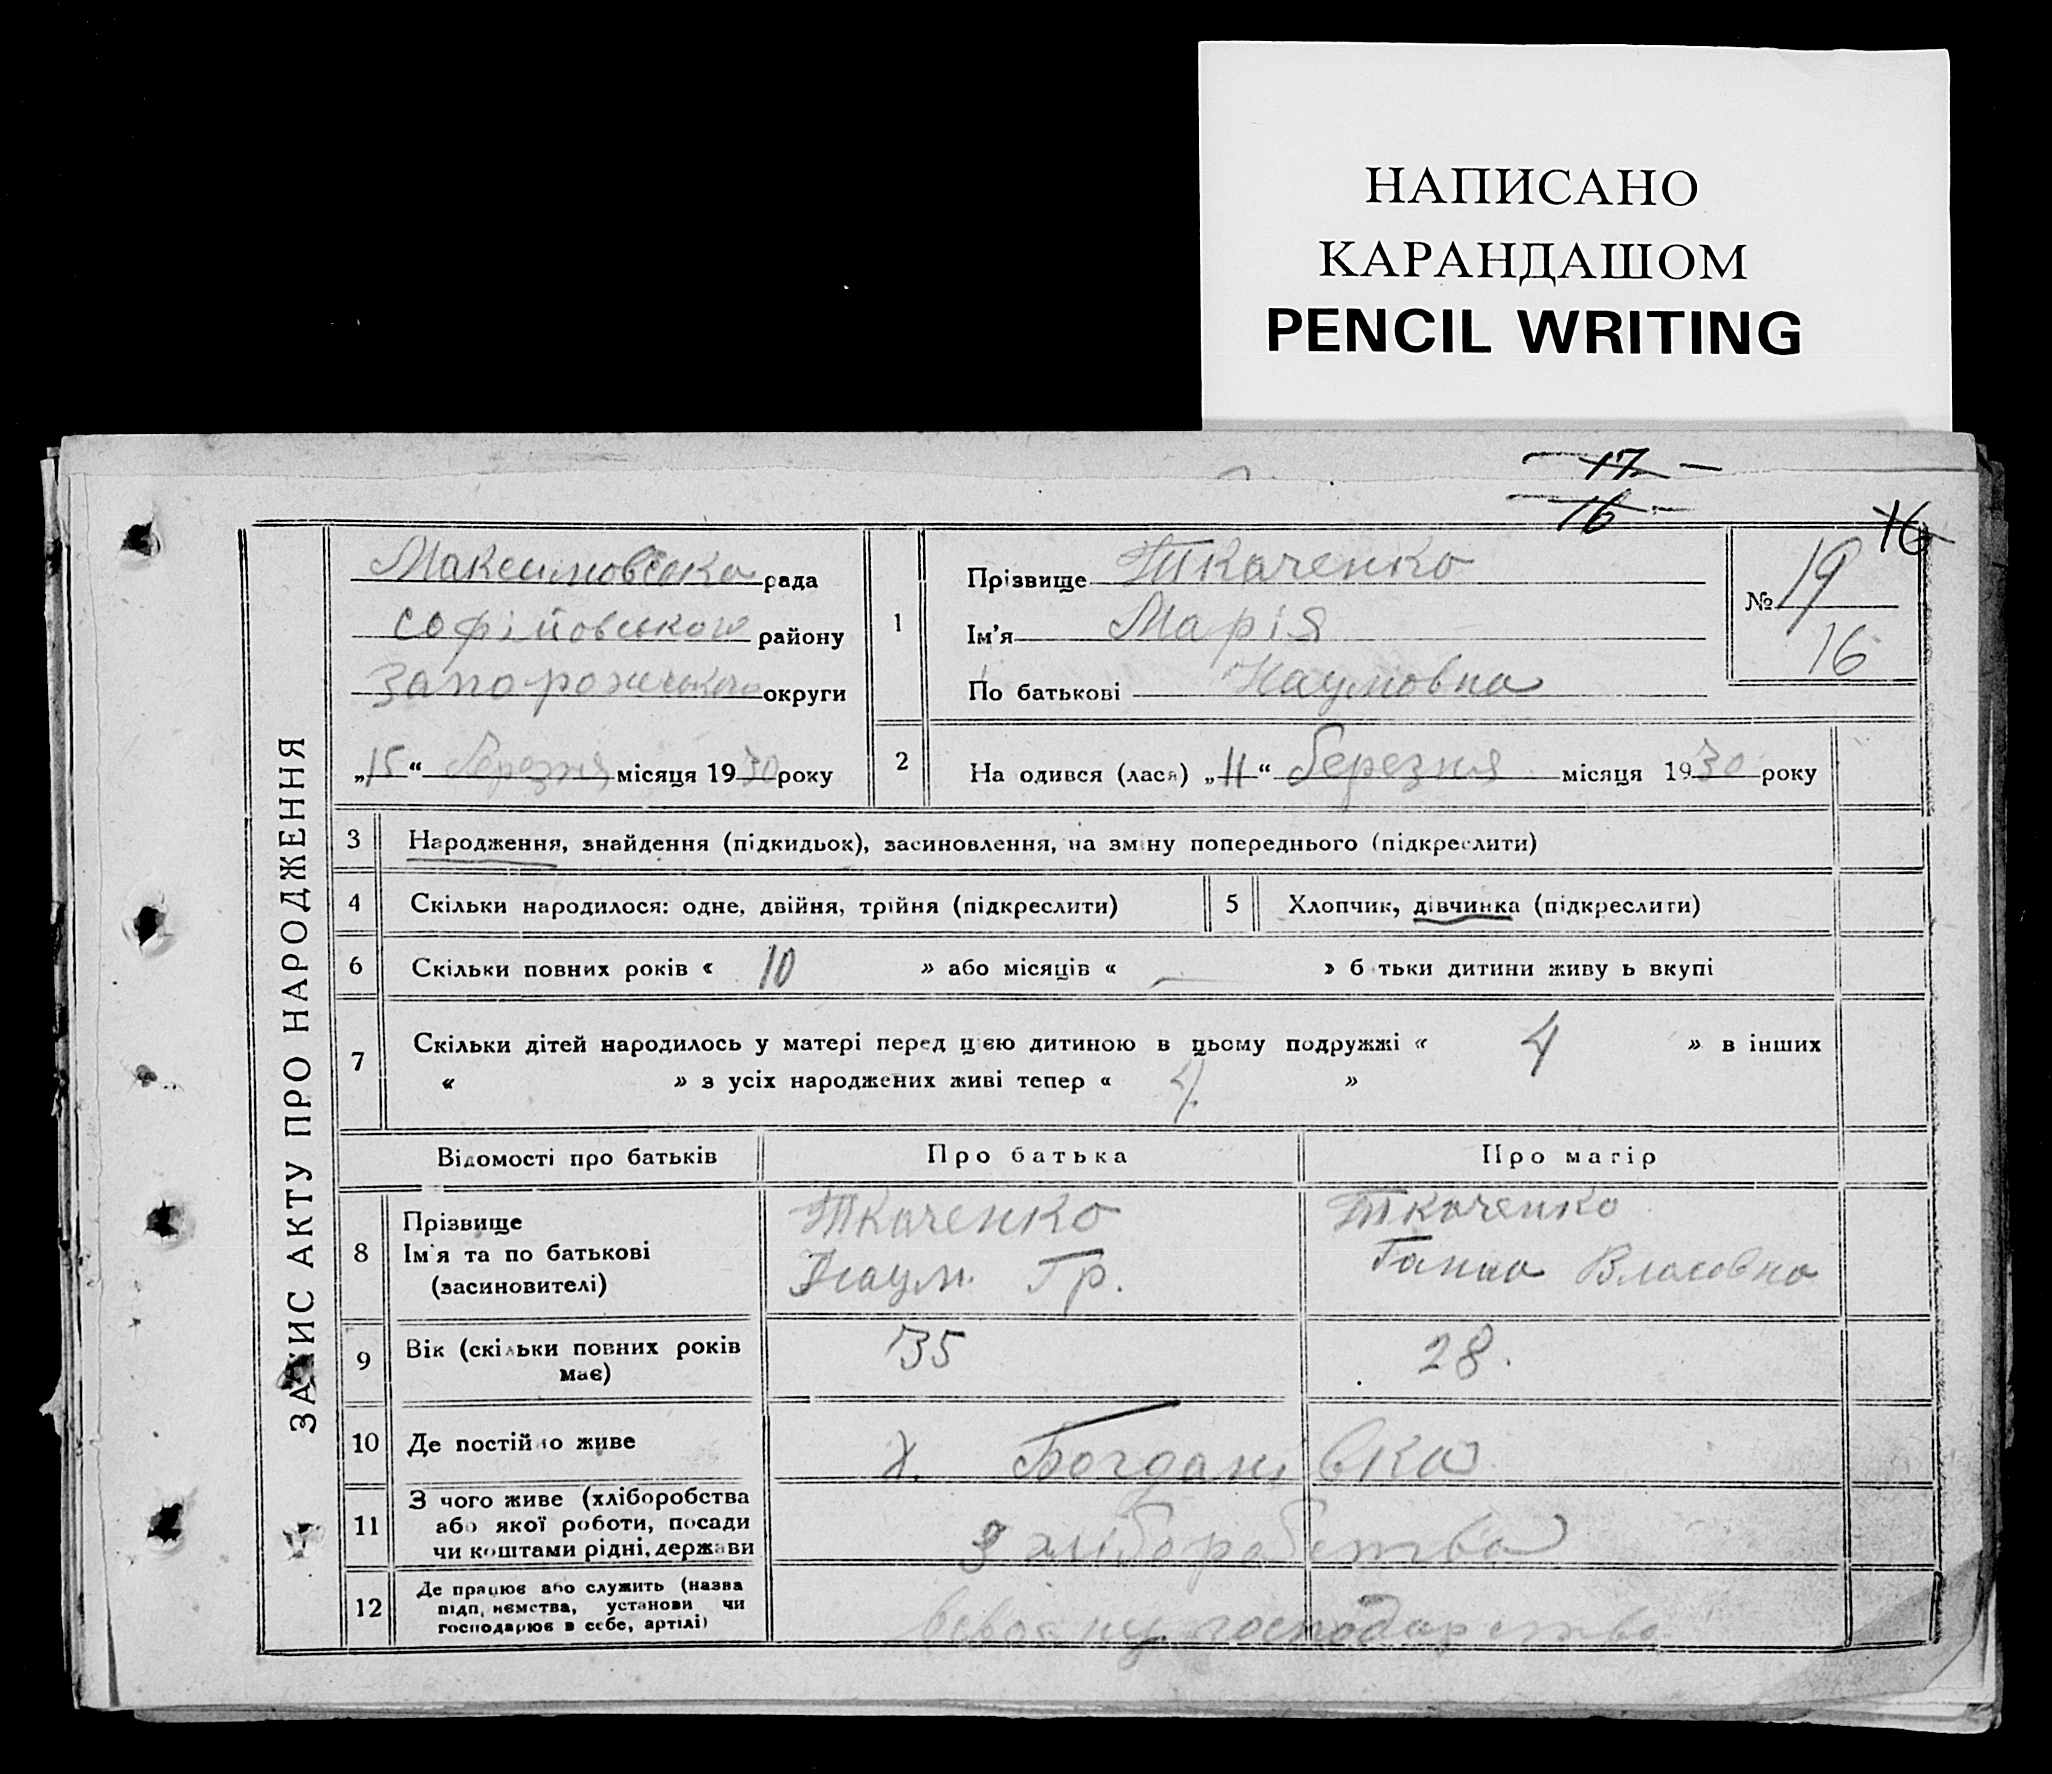 НАПИСАНО
КАРАНДАШОМ
PENCIL WRITING
17
16
16
ЗАПИС АКТУ ПРО НАРОДЖЕННЯ
Максимовська рада
Софіївського району
Запорожського округи
„15“ березня місяця 1930 року
1
Прізвище Ткаченко
Ім'я Марія
По батькові Наумовна
№ 19
16
2 На одився (лася) „11“ березня місяця 1930 року
3 Народження, знайдення (підкидьок), засиновлення, на зміну попереднього (підкреслити)
4 Скільки народилося: одне, двійня, трійня (підкреслити)
5 Хлопчик, дівчинка (підкреслити)
6 Скільки повних років « 10 » або місяців « — » б тьки дитини живу ь вкупі
7 Скільки дітей народилось у матері перед цією дитиною в цьому подружжі « 4 » в інших
« » з усіх народжених живі тепер « 4 »
Відомості про батьків Про батька Про матір
8 Прізвище
Ім'я та по батькові
(засиновителі)
Ткаченко
Наум Гр.
Ткаченко
Ганна Власовна
9 Вік (скільки повних років
має)
35 28.
10 Де постійно живе х. Богданівка
11 З чого живе (хліборобства
або якої роботи, посади
чи коштами рідні, держави
З хліборобства
12 Де працює або служить (назва
підп, иємства, установи чи
господарює в себе, артілі)
господарство